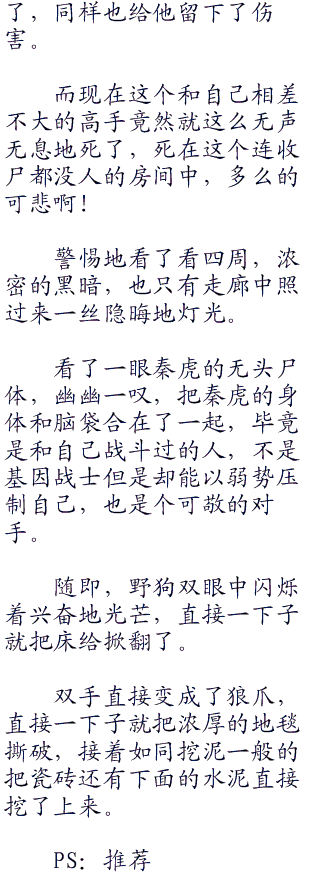 了，同样也给他留下了伤
害。
而现在这个和自己相差
不大的高手竟然就这么无声
无息地死了，死在这个连收
尸都没人的房间中，多么的
可悲啊！
警惕地看了看四周，浓
密的黑暗，也只有走廊中照
过来一丝隐晦地灯光。
看了一眼秦虎的无头尸
体，幽幽一叹，把秦虎的身
体和脑袋合在了一起，毕竟
是和自己战斗过的人，不是
基因战士但是却能以弱势压
制自己，也是个可敬的对
手。
随即，野狗双眼中闪烁
着兴奋地光芒，直接一下子
就把床给掀翻了。
双手直接变成了狼爪，
直接一下子就把浓厚的地毯
撕破，接着如同挖泥一般的
把瓷砖还有下面的水泥直接
挖了上来。
PS：推荐